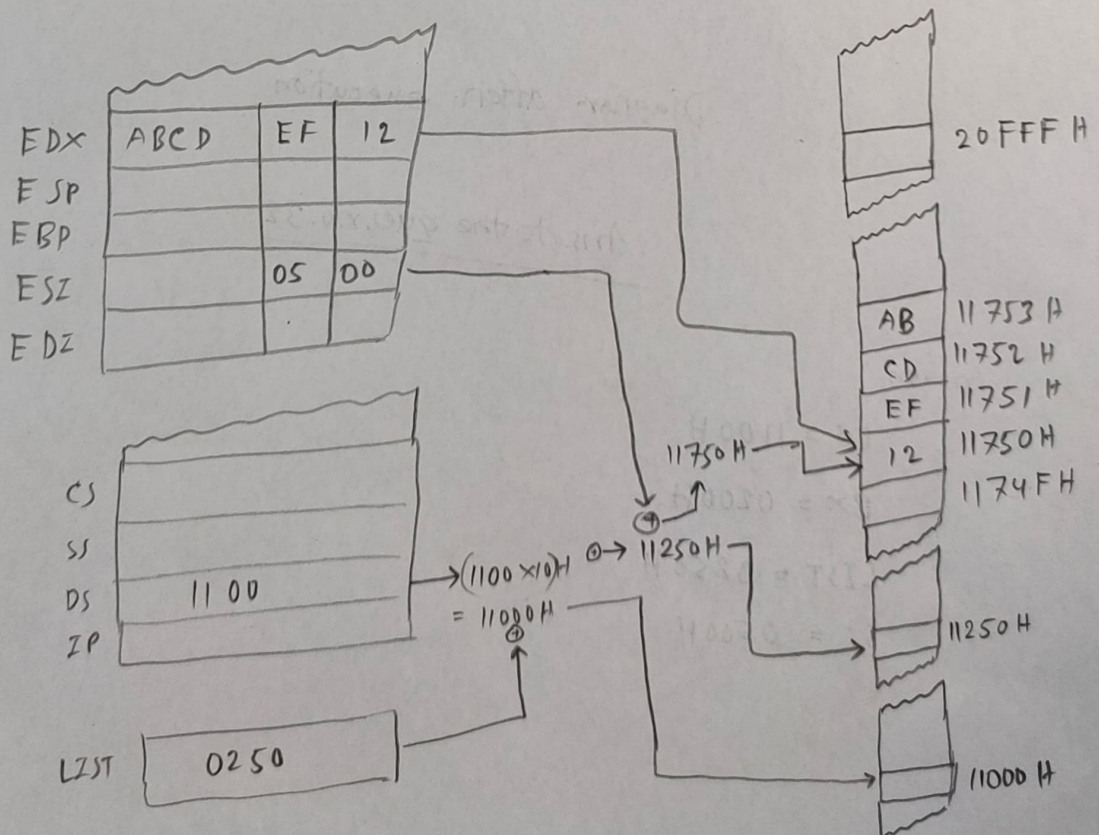 EDX ABCD EF 12
ESP
EBP
ESI 05 00
EDI
CS
SS
DS 1100
IP
LIST 0250
→(1100 ×10)H
= 11000H
+
+→ 11250H
+
11750H
20FFF H
AB 11753 H
CD 11752 H
EF 11751 H
12 11750 H
1174F H
11250 H
11000 H